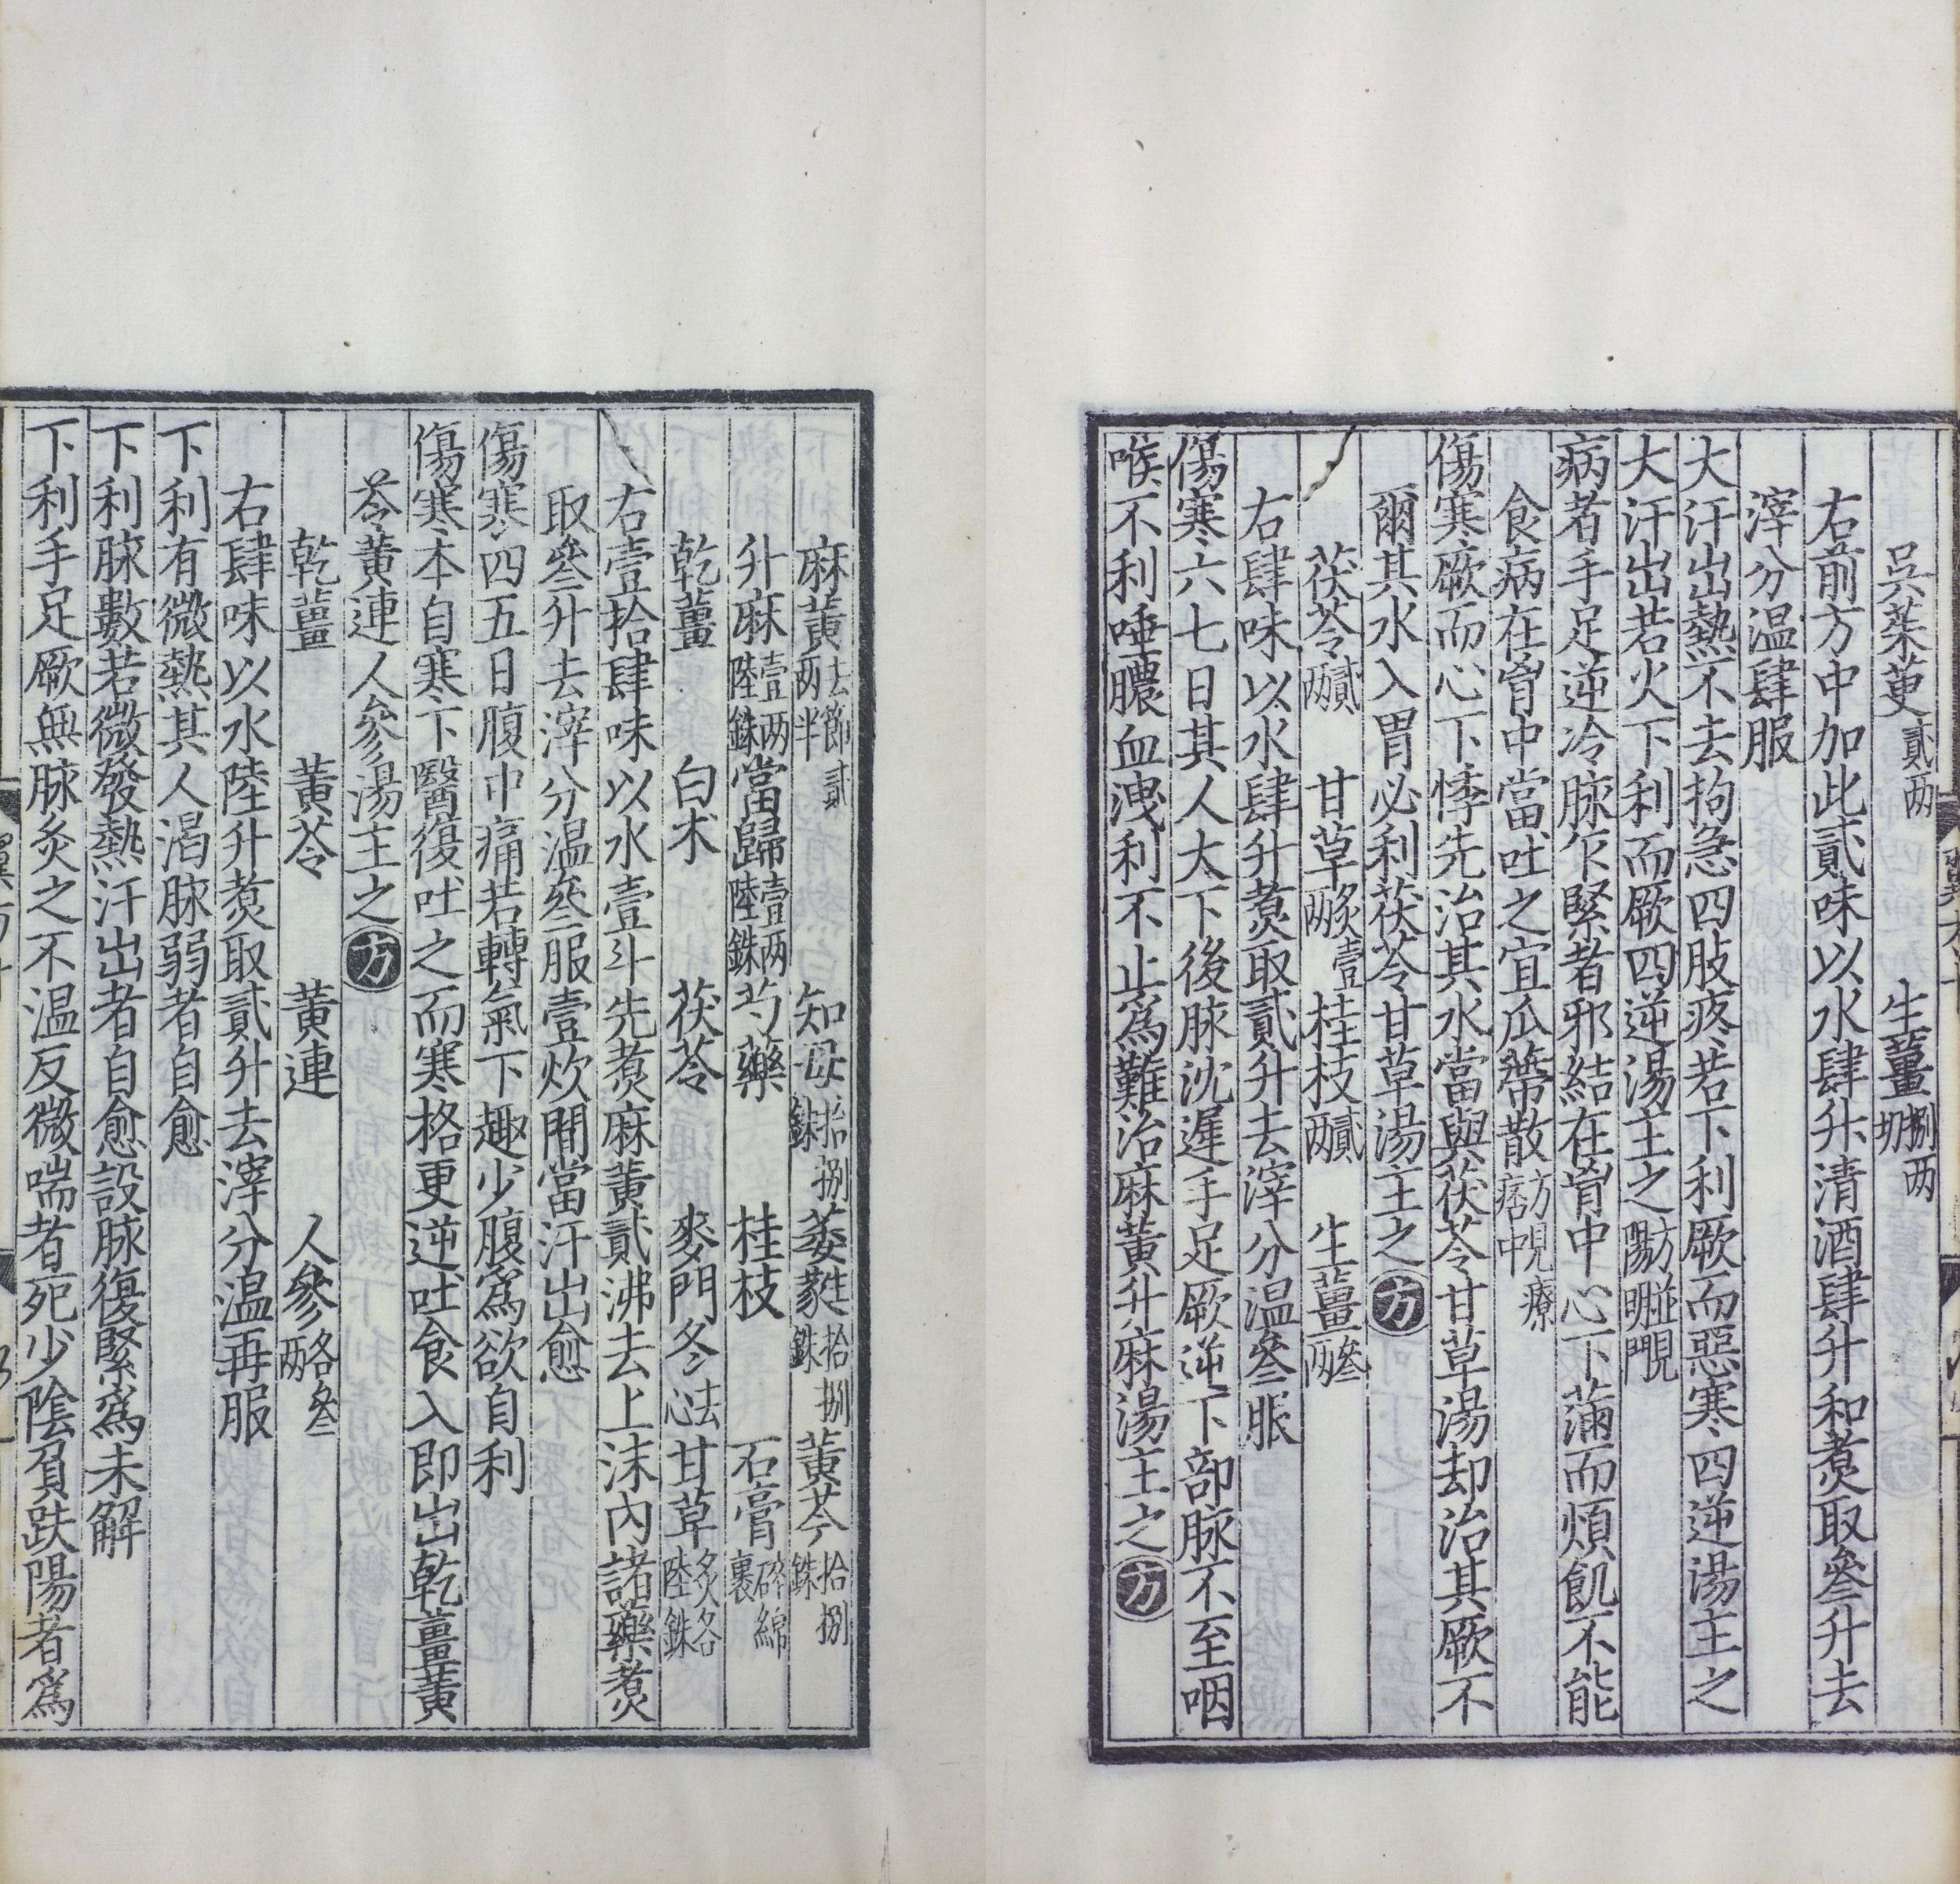 吳茱萸貳两　生薑捌两切
右前方中加此貳味以水肆升清酒肆升和煑取叄升去
滓分温肆服
大汗出熱不去拘急四肢疼若下利厥而惡寒四逆湯主之
大汗出若火下利而厥四逆湯主之方並見陽明門
病者手足逆冷脉乍緊者邪結在胷中心下滿而煩飢不能
食病在胷中當吐之宜瓜蔕散方見療痞中
傷寒厥而心下悸先治其水當與茯苓甘草湯却治其厥不
爾其水入胃必利茯苓甘草湯主之方
茯苓貳两　甘草炙壹两　桂枝貳两　生薑叄两
右肆味以水肆升煑取貳升去滓分温叄服
傷寒六七日其人大下後脉沈遲手足厥逆下部脉不至咽
喉不利唾膿血洩利不止爲難治麻黃升麻湯主之方
麻黃去節貳两半　知母拾捌銖　萎蕤拾捌銖　黃芩拾捌銖
升麻壹两陸銖　當歸壹两陸銖　芍藥　桂枝　石膏碎綿裹
乾薑　白朮　茯苓　麥門冬去心　甘草炙各陸銖
右壹拾肆味以水壹斗先煑麻黃貳沸去上沫內諸藥煑
取叄升去滓分温叄服壹炊間當汗出愈
傷寒四五日腹中痛若轉氣下趣少腹爲欲自利
傷寒本自寒下醫復吐之而寒格更逆吐食入即出乾薑黃
芩黃連人參湯主之方
乾薑　黃芩　黃連　人參各叄两
右肆味以水陸升煑取貳升去滓分温再服
下利有微熱其人渴脉弱者自愈
下利脉數若微發熱汗出者自愈設脉復緊爲未解
下利手足厥無脉灸之不温反微喘者死少陰負趺陽者爲